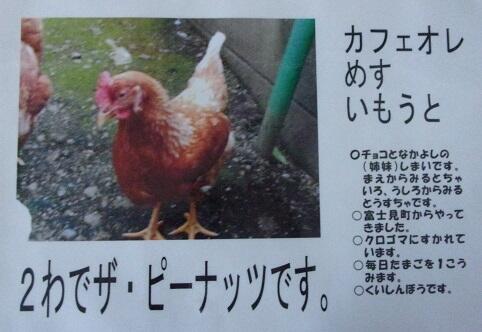 カフェオレ
めす
いもうと
○チョコとなかよしの
(姉妹)しまいです。
まえからみるとちゃ
いろ、うしろからみる
とうすちゃです。
○富士見町からやって
きました。
○クロゴマにすかれて
います。
○毎日たまごを1こう
みます。
○くいしんぼうです。
2わでザ・ピーナッツです。